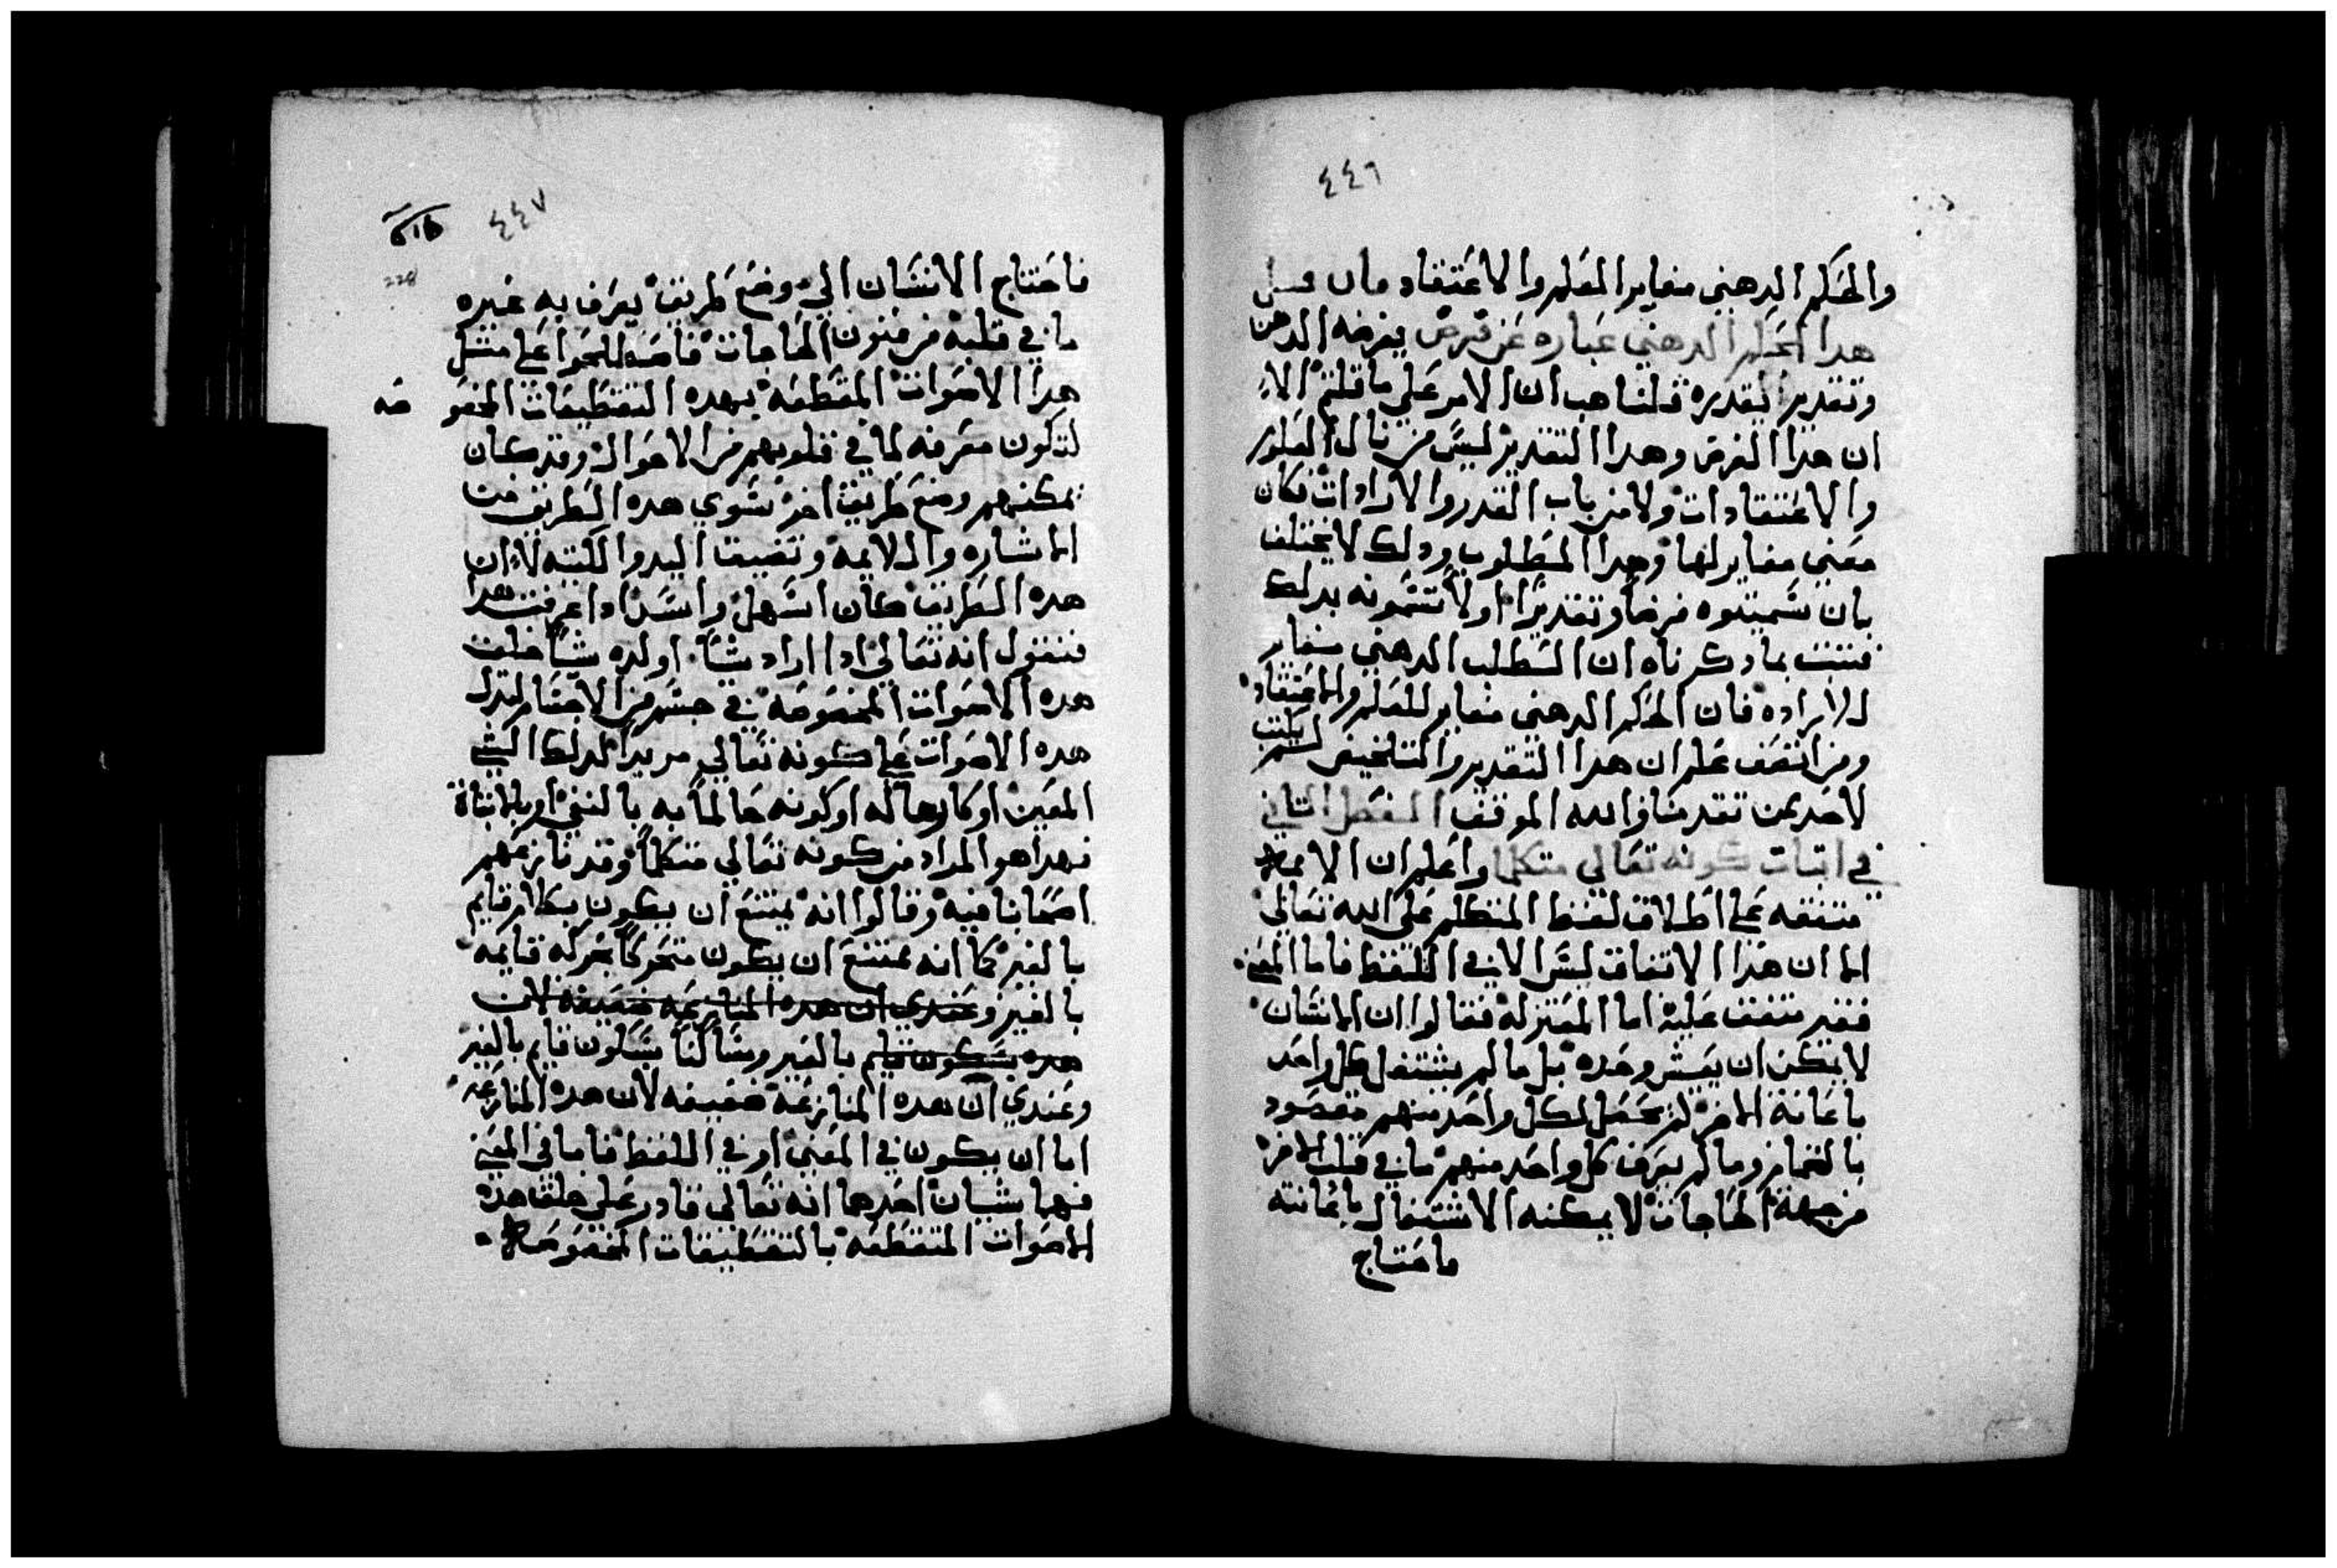 ٤٤٦
والحكم الدهني مغاير العلم والاعتقاد فان قيل
هدا الحكم الدهني عباره عن فرض يفرضه الدهن
وتقدير يقدره قلنا هب ان الامر على ما قلتم الا
ان هدا الفرض وهدا التقدير ليس من باب العلوم
والاعتقادات ولا من باب القدر والارادات فكان
معني مغاير لها وهدا المطلوب ودلك لا يختلف
بان سميتوه فرضاً وتقديراً او لا تسمونه بدلك
فتبت بما دكرناه ان الطلب الدهني مغاير
للاراده فان الحكم الدهني مغاير للعلم والاعتقاد
ومن انصف علم ان هدا التقدير والتلخيص لم يثبت
لاحد ممن تقدمنا والله الموفق الفصل التاني
في اتبات كونه تعالي متكلما واعلم ان الامه
متفقه علي اطلاق لفظ المتكلم على الله تعالي
الا ان هدا الاتفاق ليس الا في اللفظ فاما المعني
فغير متفق عليه اما المعتزله فقالوا ان الانسان
لا يمكن ان يعيش وحده بل ما لم يشتغل كل واحد
باعانة الاخر لم يحصل لكل واحد منهم مقصود
بالتمام وما لم يعرف كل واحد منهم ما في قلب الاخر
من جهة الحاجات لا يمكنه الاشتغال باعانته
فاحتاج
٤٤٧
228
فاحتاج الانسان الي وضع طريق يعرف به غيره
ما في قلبه من فنون الحاجات فاصطلحوا علي مثل
هدا الاصوات المقطعه بهده التقطيعات المخصو صه
لتكون معرفه لما في قلوبهم من الاحوال وقد كان
يمكنهم وضع طريق اخر سوي هده الطريق من
الاشاره والايمه وتصفيق اليد والكتبه لان
هده الطريق كان اسهل وايسر ادا عرفت هدا
فنقول انه تعالي ادا اراد شياً او كره شياً خلق
هده الاصوات المخصوصه في جسم من الاجسام لتدل
هده الاصوات علي كونه تعالي مريداً لدلك الشي
المعين او كارهاً له او كونه حاكماً به بالنفي او بالاتباة
فهدا هو المراد من كونه تعالي متكلماً وقد نازعهم
اصحابنا فيه وقالوا انه يمتنع ان يكون بكلام قايم
بالغير كما انه يمتنع ان يكون متحركاً بحركه قايمه
بالغير وعندي ان هده المنازعه ضعيفه لان
هده بسكون قايم بالغير وساكناً بسكون قايم بالغير
وعندي ان هده المنازعة ضعيفه لان هده المنازعه
اما ان يكون في المعني او في اللفظ فاما في المعني
فهما شيان احدهما انه تعالي قادر علي خلق هده
الاصوات المتقطعه بالتقطيعات المخصوصه